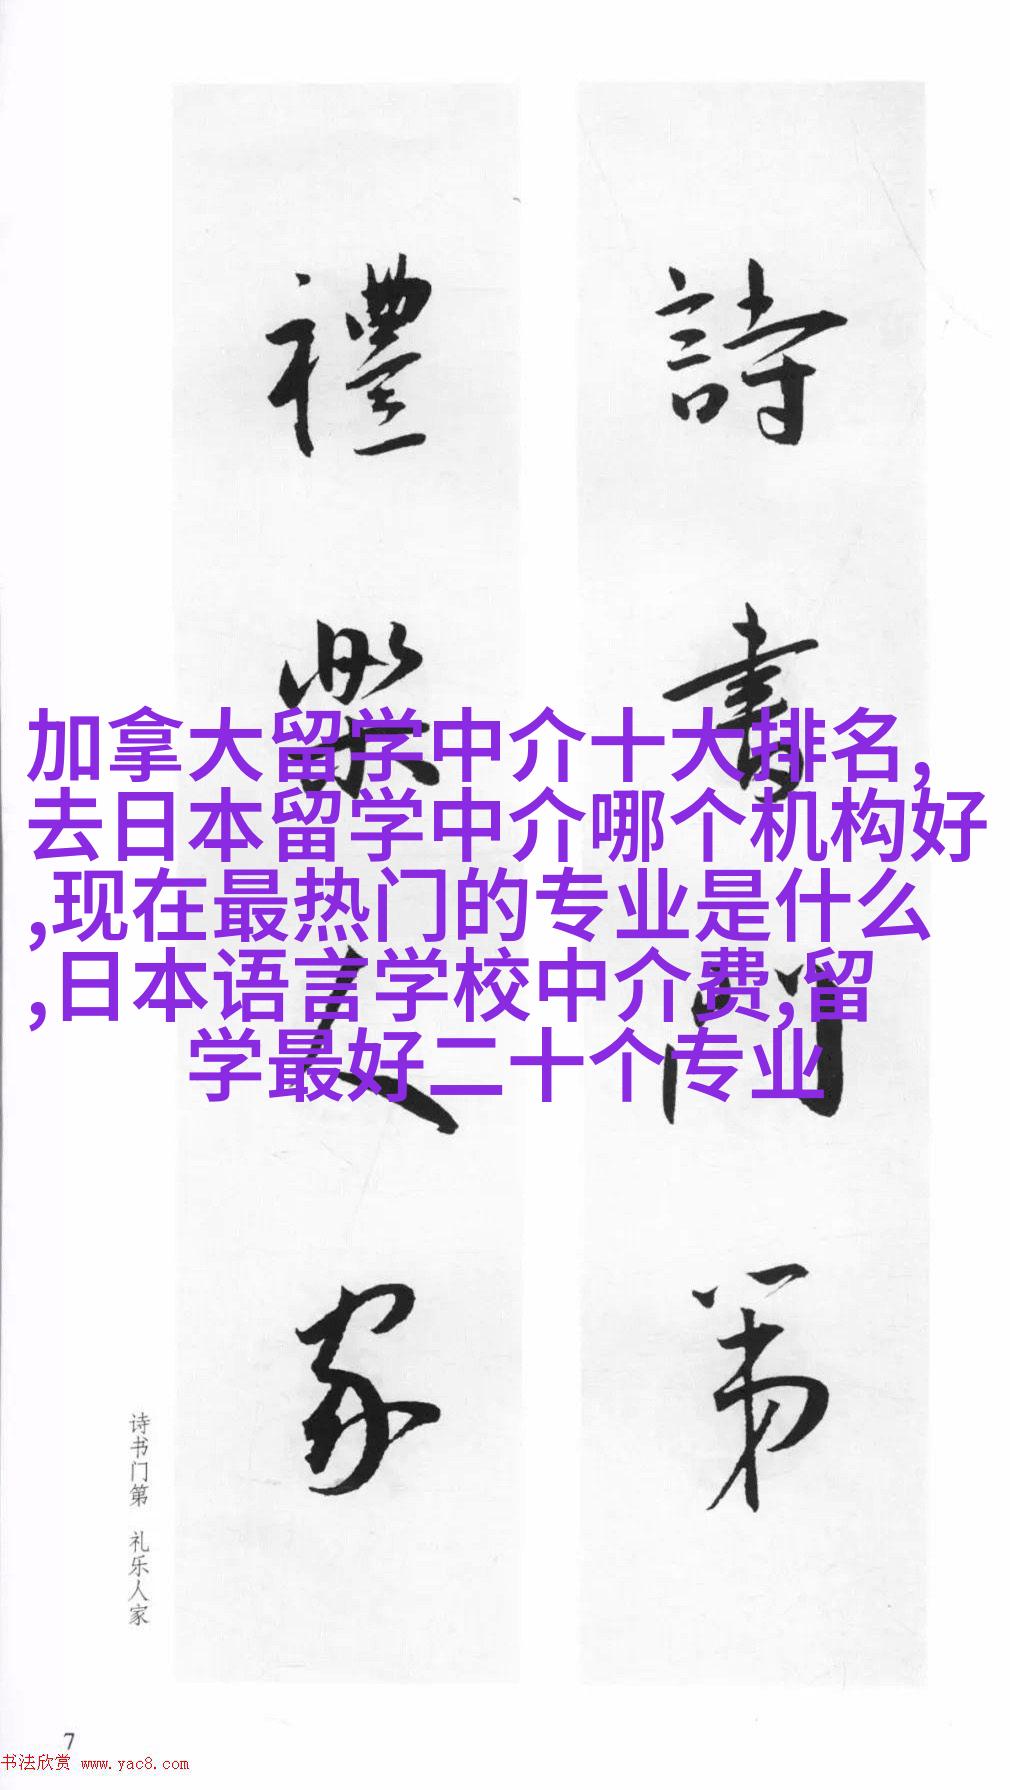 詩書門第
禮樂人家
加拿大留学中介十大排名,
去日本留学中介哪个机构好
,现在最热门的专业是什么
,日本语言学校中介费,留
学最好二十个专业
诗书门第 礼乐人家
7
书法欣赏 www.yac8.com